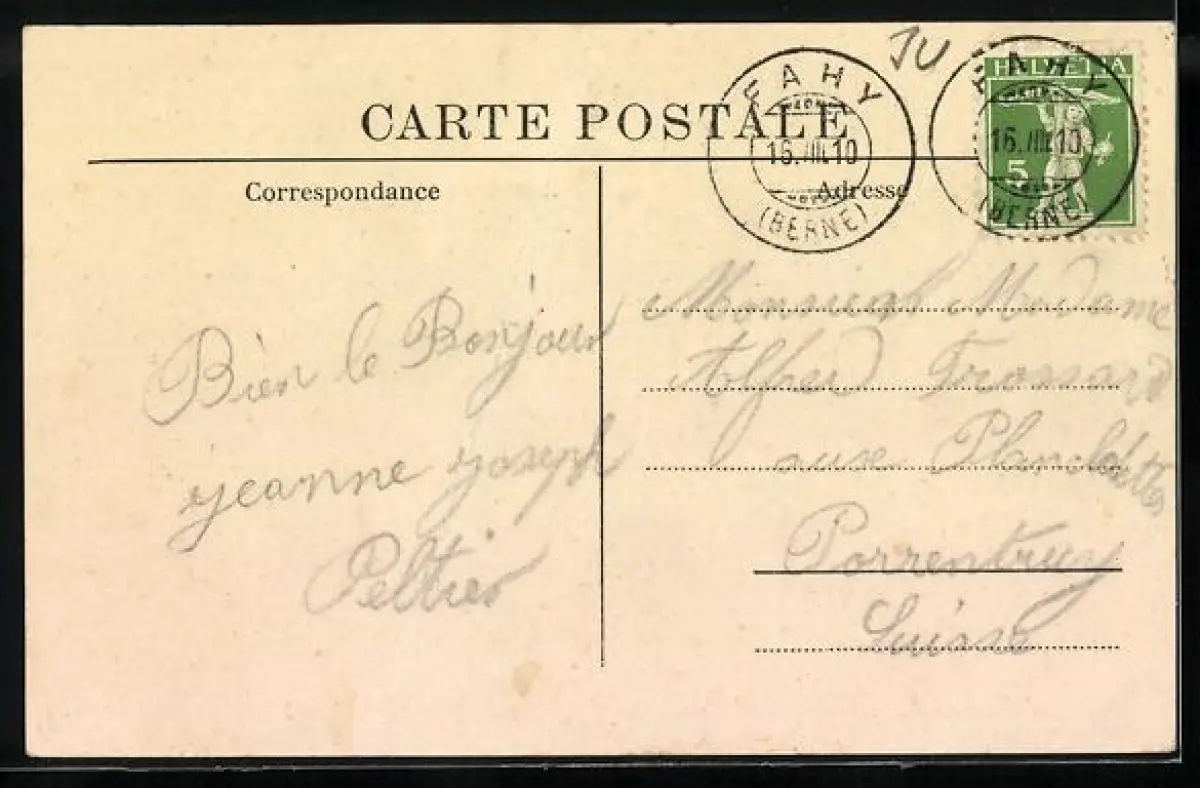 JU
CARTE POSTALE
FAHY
16.VIII.10
(BERNE)
HELVETIA
5
FAHY
16.VIII.10
(BERNE)
Correspondance
Adresse
Bien le Bonjour
jeanne joseph
Peltier
Madame
Alfred Frossard
aux Planchettes
Porrentruy
Suisse